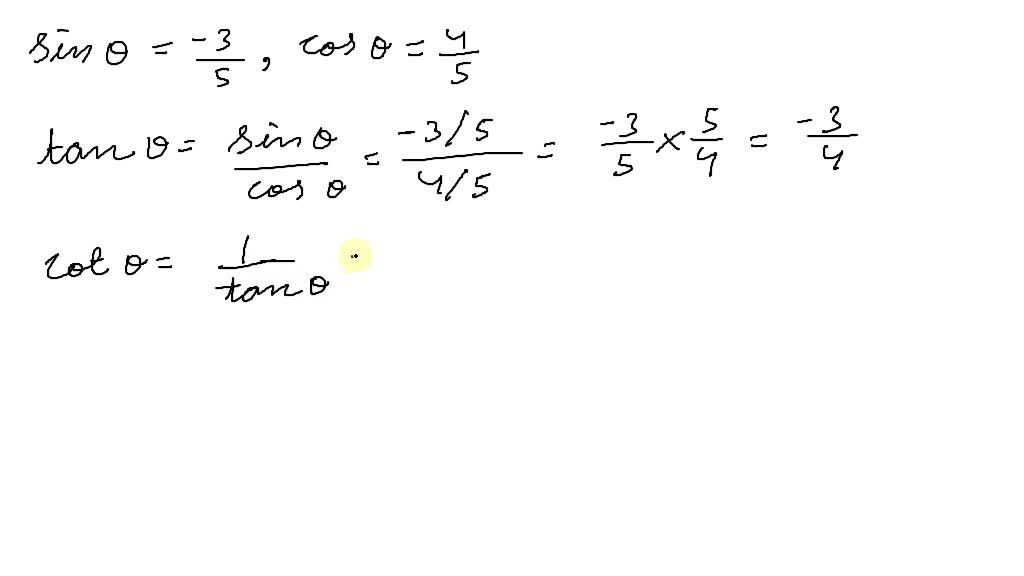 sin θ = -3/5, cos θ = 4/5
tan θ = sin θ/cos θ = (-3/5)/(4/5) = -3/5 × 5/4 = -3/4
cot θ = 1/tan θ